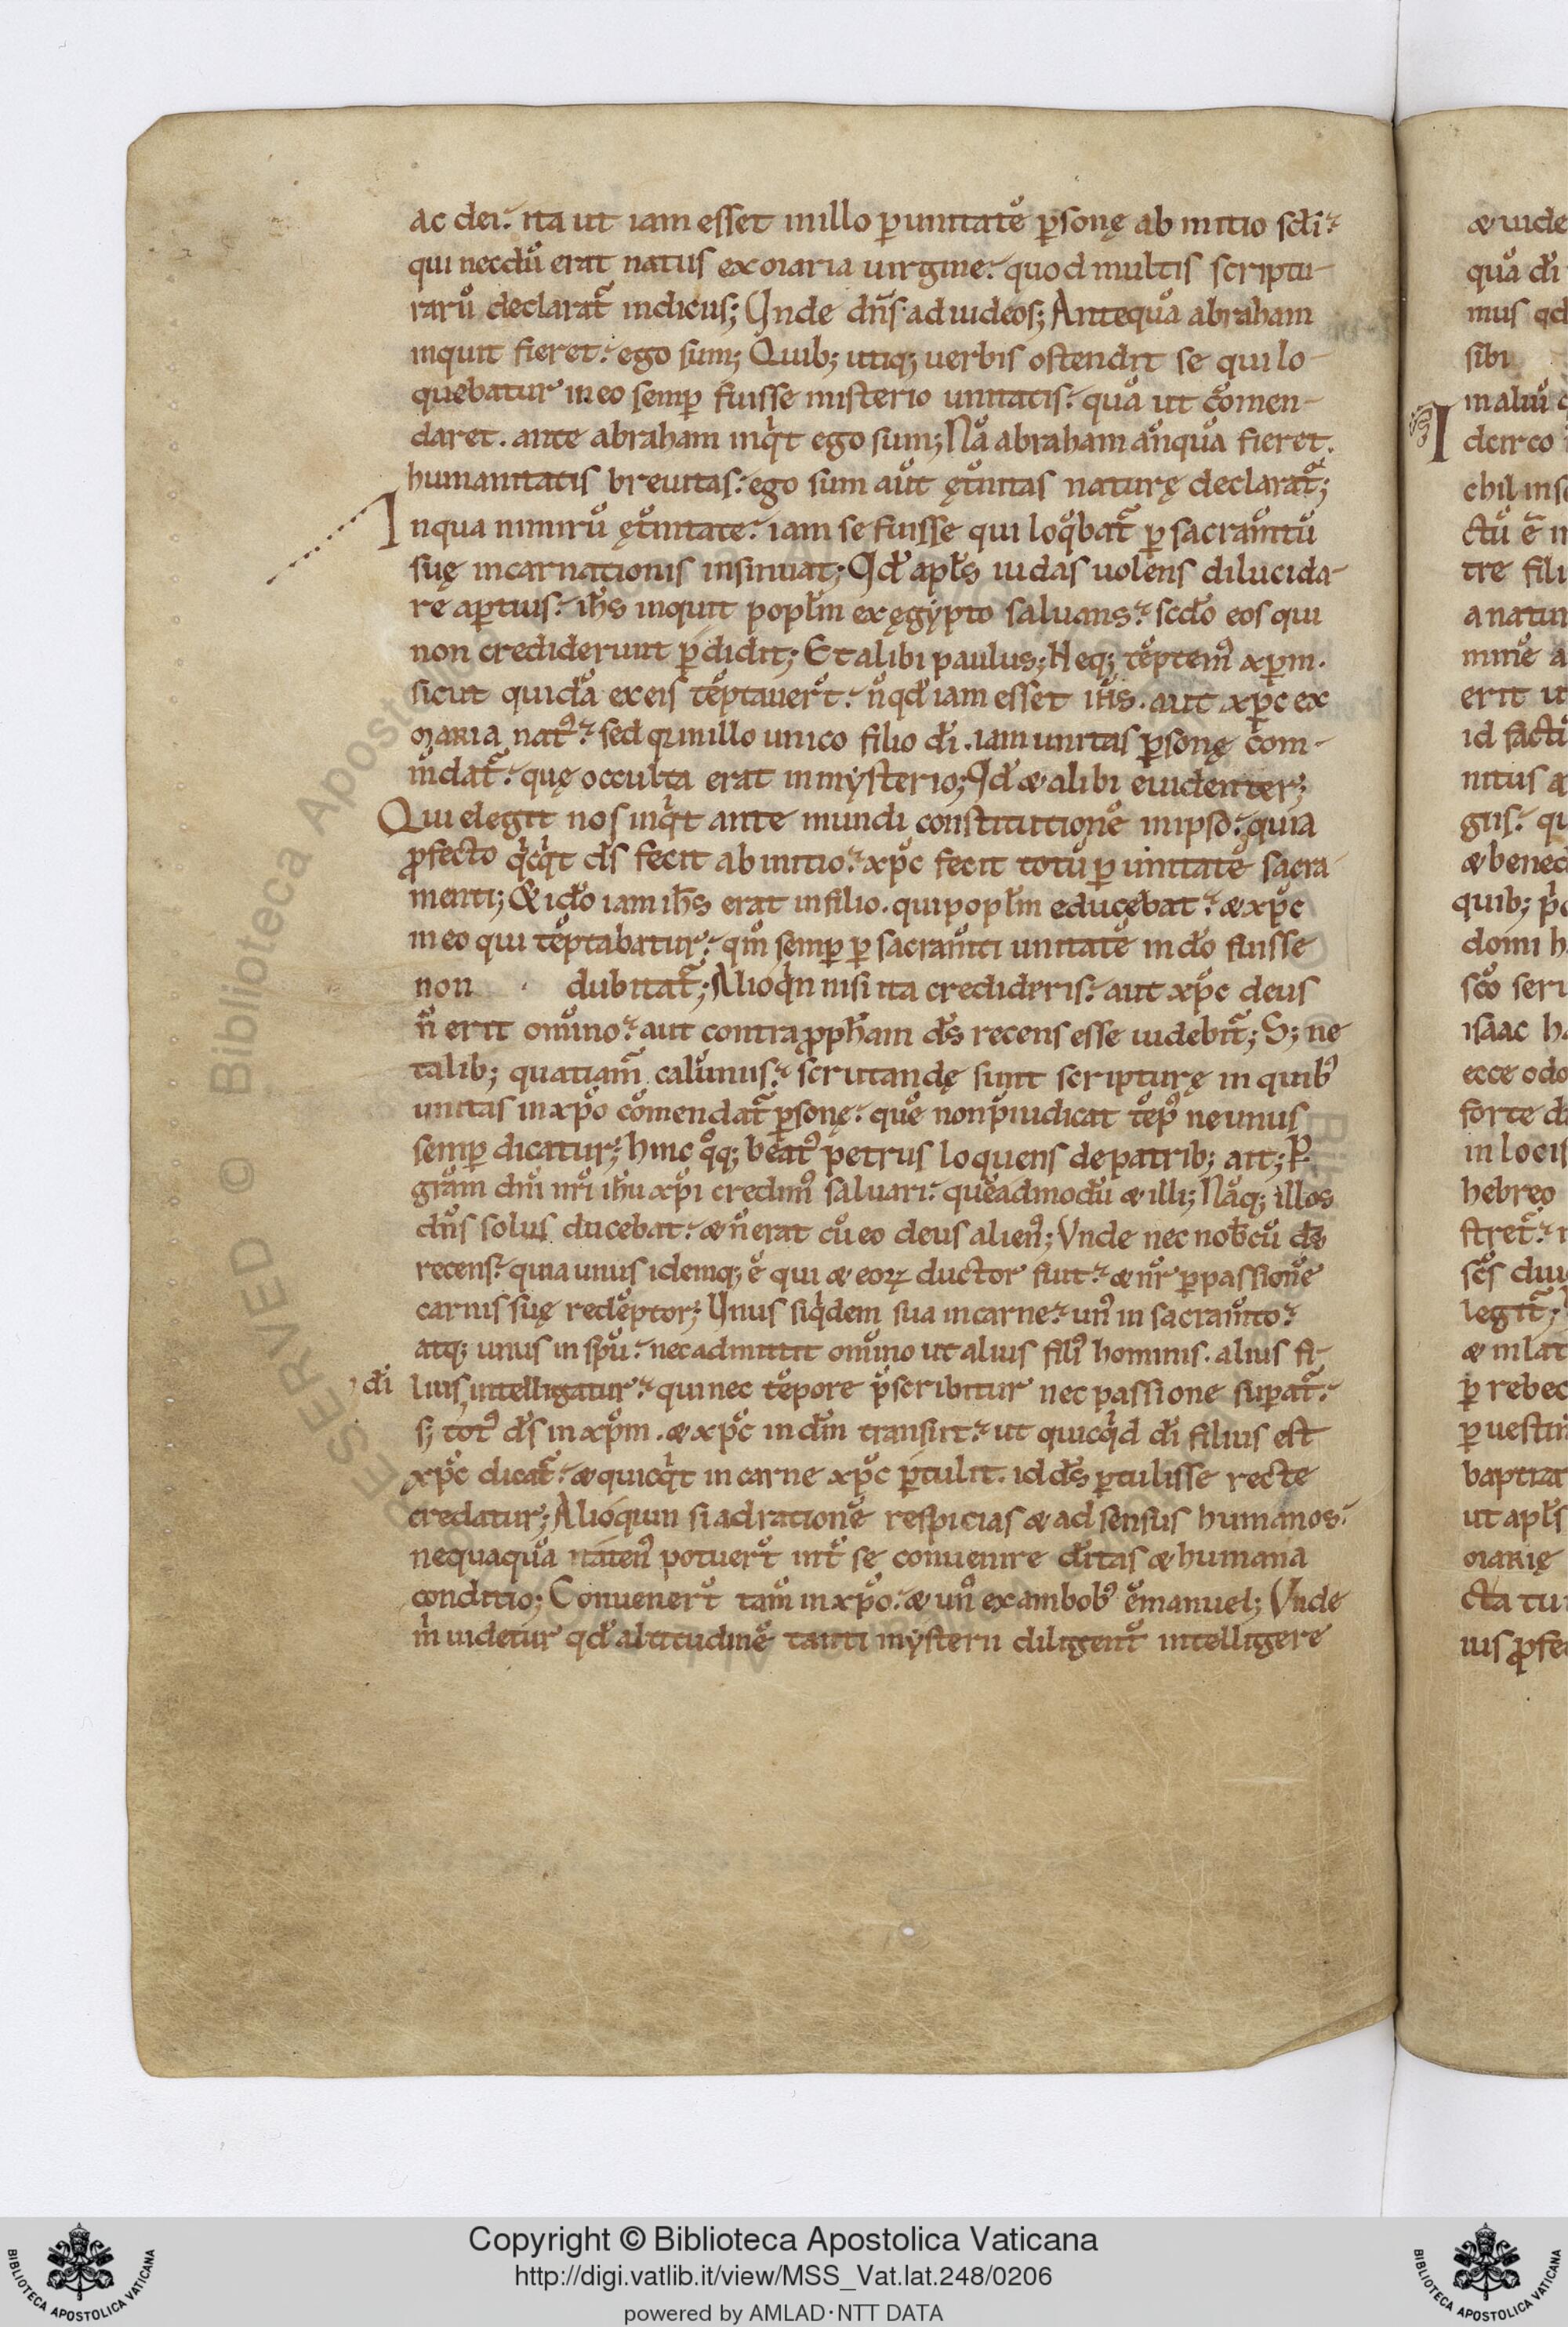 ac dei. ita ut iam esset inillo ꝑ unitatē ꝑsonę ab initio scd̄i.
qui necdū erat natus ex maria uirgine. quod multis scriptu-
rarū declarat᷑ indiciis; Unde dn̄s ad iudeos; Antequā abraham
inquit fieret. ego sum; Quib; utiq; uerbis ostendit se qui lo-
quebatur in eo semꝑ fuisse misterio unitatis. quā ut cōmen-
daret. ante abraham inqͥt ego sum; Nā abraham anͣquā fieret.
humanitatis breuitas. ego sum aūt ęt̄nitas naturę declarat᷑;
Inqua nimirū ęt̄nitate. iam se fuisse qui loqͦbat᷑ ꝑ sacram̄tū
suę incarnationis insinuat; Qd̄ apl̄s iudas uolens dilucida-
re aꝑtius. ih̄s inquit popl̄m ex ęgypto saluans. scd̄o eos qui
non crediderunt ꝑdidit; Et alibi paulus; Neq; tēptem᷒ xp̄m.
sicut quidā ex eis tēptauer̄t. n̄ qd̄ iam esset ih̄s. aut xp̄c ex
maria nat᷒. sed q̄ inillo unico filio dī. iam unitas ꝑsonę com-
m̄dat᷑. quę occulta erat in mysterio; Qd̄ & alibi euidenter;
Qui elegit nos inqͥt ante mundi constitutionē in ipso. quia
ꝓfecto qͥcqͥt d̄s fecit ab initio. xp̄c fecit totū ꝑ unitatē sacra-
menti; & id̄o iam ih̄s erat in filio. qui popl̄m educębat. & xp̄c
in eo qui tēptabatur. qm̄ semꝑ ꝑ sacram̄ti unitatē in dō fuisse
non dubitat᷑; Alioqͥn nisi ita credideris. aut xp̄c deus
n̄ erit om̄ino. aut contra ꝓph̄am d̄s recens esse uidebit᷑; S; ne
talib; quatiam᷑ calūniis. scrutandę sunt scripturę in quib᷒
unitas in xp̄o cōmendat᷑ ꝑsonę. quē non p̄iudicat tēp᷒ ne unus
semꝑ dicatur; hinc qͦq; beat᷒ petrus loquens de patrib; ait; P
grām dn̄i nr̄i ih̄u xp̄i credim᷒ saluari. quēadmodū & illi; Nāq; illos
dn̄s solus ducebat. & n̄ erat cū eo deus alien᷒; Vnde nec nob̄cū d̄s
recens. quia unus idemq; ē qui & eoꝝ ductor fuit. & nr̄ ꝑ passionē
carnis suę redēptor; Unus siqͥdem sua in carne. un᷒ in sacram̄to.
atq; unus in spū. nec admittit om̄ino ut alius fili᷒ hominis. alius fi-
dī lius, intelligatur. qui nec tēpore p̄scribitur nec passione suꝑat᷑.
s; tot᷒ d̄s in xp̄m. & xp̄c in dm̄ transiit. ut quicqͥd dī filius est
xp̄c dicat᷑. & quicqͥt in carne xp̄c ꝑtulit. id d̄s ꝑtulisse recte
credatur; Alioquin si ad rationē respicias & ad sensus humanos.
nequaquā potuer̄t int̄ se conuenire d̄itas & humana
conditio; Conuener̄t tam̄ in xp̄o. & un᷒ ex ambob᷒ ēmanuel; Vnde
m̄ uidetur qd̄ altitudinē tanti mysterii diligent̄ intelligere

& uide
quā dī
mus qd
sibi
in aliū
Idcirco
chil ins
ctū ē in
tre fili
a natiu
minē a
erit ut
id factū
nitus a
gus. qu
& bened
quib; p̄
domi h
scō seru
isaac h
ecce odo
forte d
in locis
hebreo
stret᷑.
scs diu
legit᷑;
& in lat
ꝑ rebec
ꝑ uestim
baptizat
ut apl̄s
marię
cta tu
ius ꝓfe

Copyright © Biblioteca Apostolica Vaticana
http://digi.vatlib.it/view/MSS_Vat.lat.248/0206
powered by AMLAD·NTT DATA
BIBLIOTECA APOSTOLICA VATICANA
BIBLIOTECA APOSTOLICA VATICANA